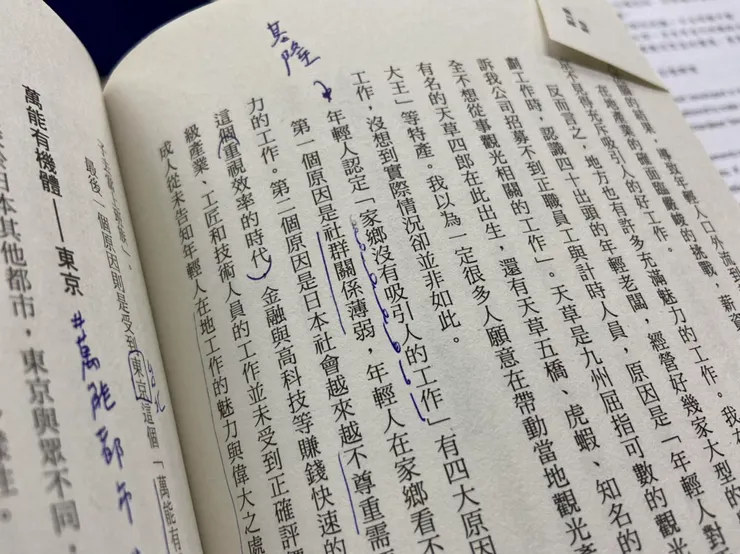 基隆
的結果，導致年輕人口外流到
在地產業的確面臨嚴峻的挑戰，薪資
不見得充斥吸引人的好工作。
反而言之，地方也有許多充滿魅力的工作。我在
劃工作時，認識四十出頭的年輕老闆，經營好幾家大型的
訴我公司招募不到正職員工與計時人員，原因是「年輕人對
全不想從事觀光相關的工作」。天草是九州屈指可數的觀光
有名的天草四郎在此出生，還有天草五橋、虎蝦、知名的
大王」等特產。我以為一定很多人願意在帶動當地觀光產
工作，沒想到實際情況卻並非如此。
年輕人認定「家鄉沒有吸引人的工作」有四大原因
第一個原因是社群關係薄弱，年輕人在家鄉看不
力的工作。第二個原因是日本社會越來越不尊重需
這個重視效率的時代，金融與高科技等賺錢快速的
級產業、工匠和技術人員的工作並未受到正確評價
成人從未告知年輕人在地工作的魅力與偉大之處
最後一個原因則是受到東京這個「萬能有
台北
#萬能都市
萬能有機體——東京
於日本其他都市，東京與眾不同，